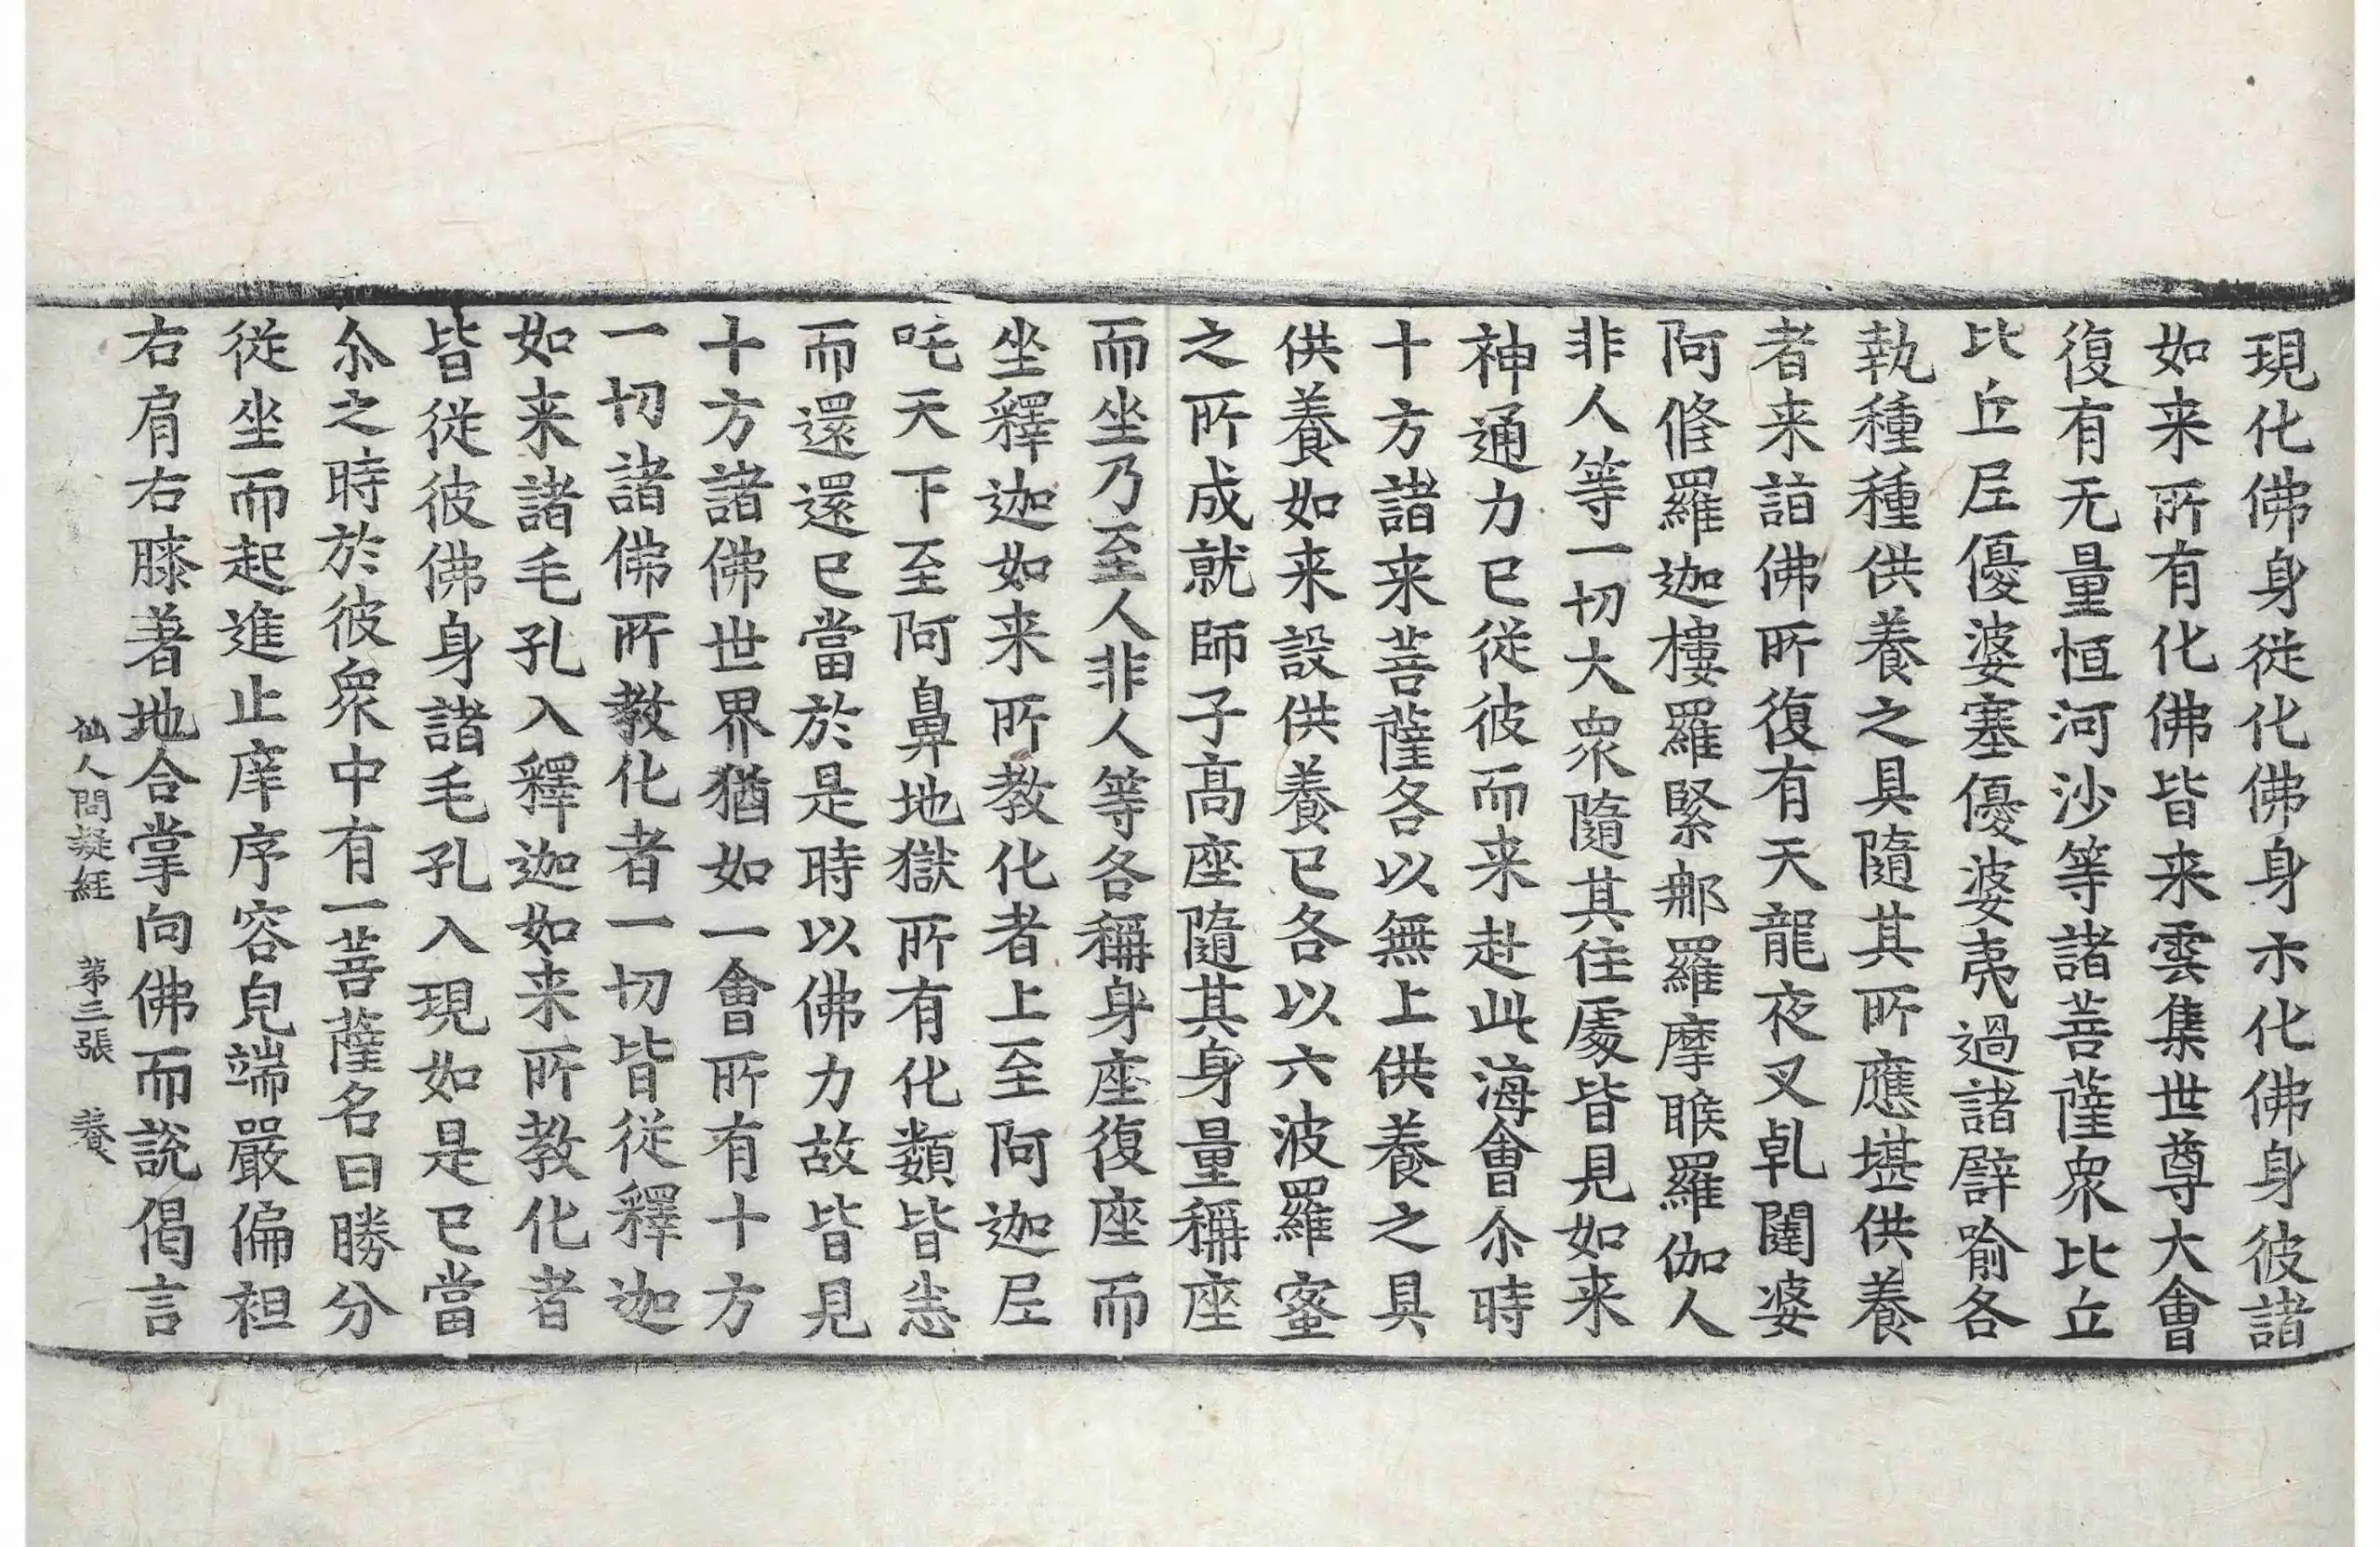 現化佛身從化佛身示化佛身彼諸
如来所有化佛皆来雲集世尊大會
復有无量恒河沙等諸菩薩衆比丘
比丘尼優婆塞優婆夷過諸辟喻各
執種種供養之具隨其所應堪供養
者来詣佛所復有天龍夜叉乹闥婆
阿修羅迦樓羅緊那羅摩睺羅伽人
非人等一切大衆隨其住處皆見如来
神通力已從彼而来赴此海會尒時
十方諸来菩薩各以無上供養之具
供養如来設供養已各以六波羅蜜
之所成就師子高座隨其身量稱座
而坐乃至人非人等各稱身座復座而
坐釋迦如来所教化者上至阿迦尼
吒天下至阿鼻地獄所有化類皆悉
而還還已當於是時以佛力故皆見
十方諸佛世界猶如一會所有十方
一切諸佛所教化者一切皆從釋迦
如来諸毛孔入釋迦如来所教化者
皆從彼佛身諸毛孔入現如是已當
尒之時於彼衆中有一菩薩名曰勝分
從坐而起進止庠序容皃端嚴偏袒
右肩右膝著地合掌向佛而說偈言
仙人問疑經 第三張 養